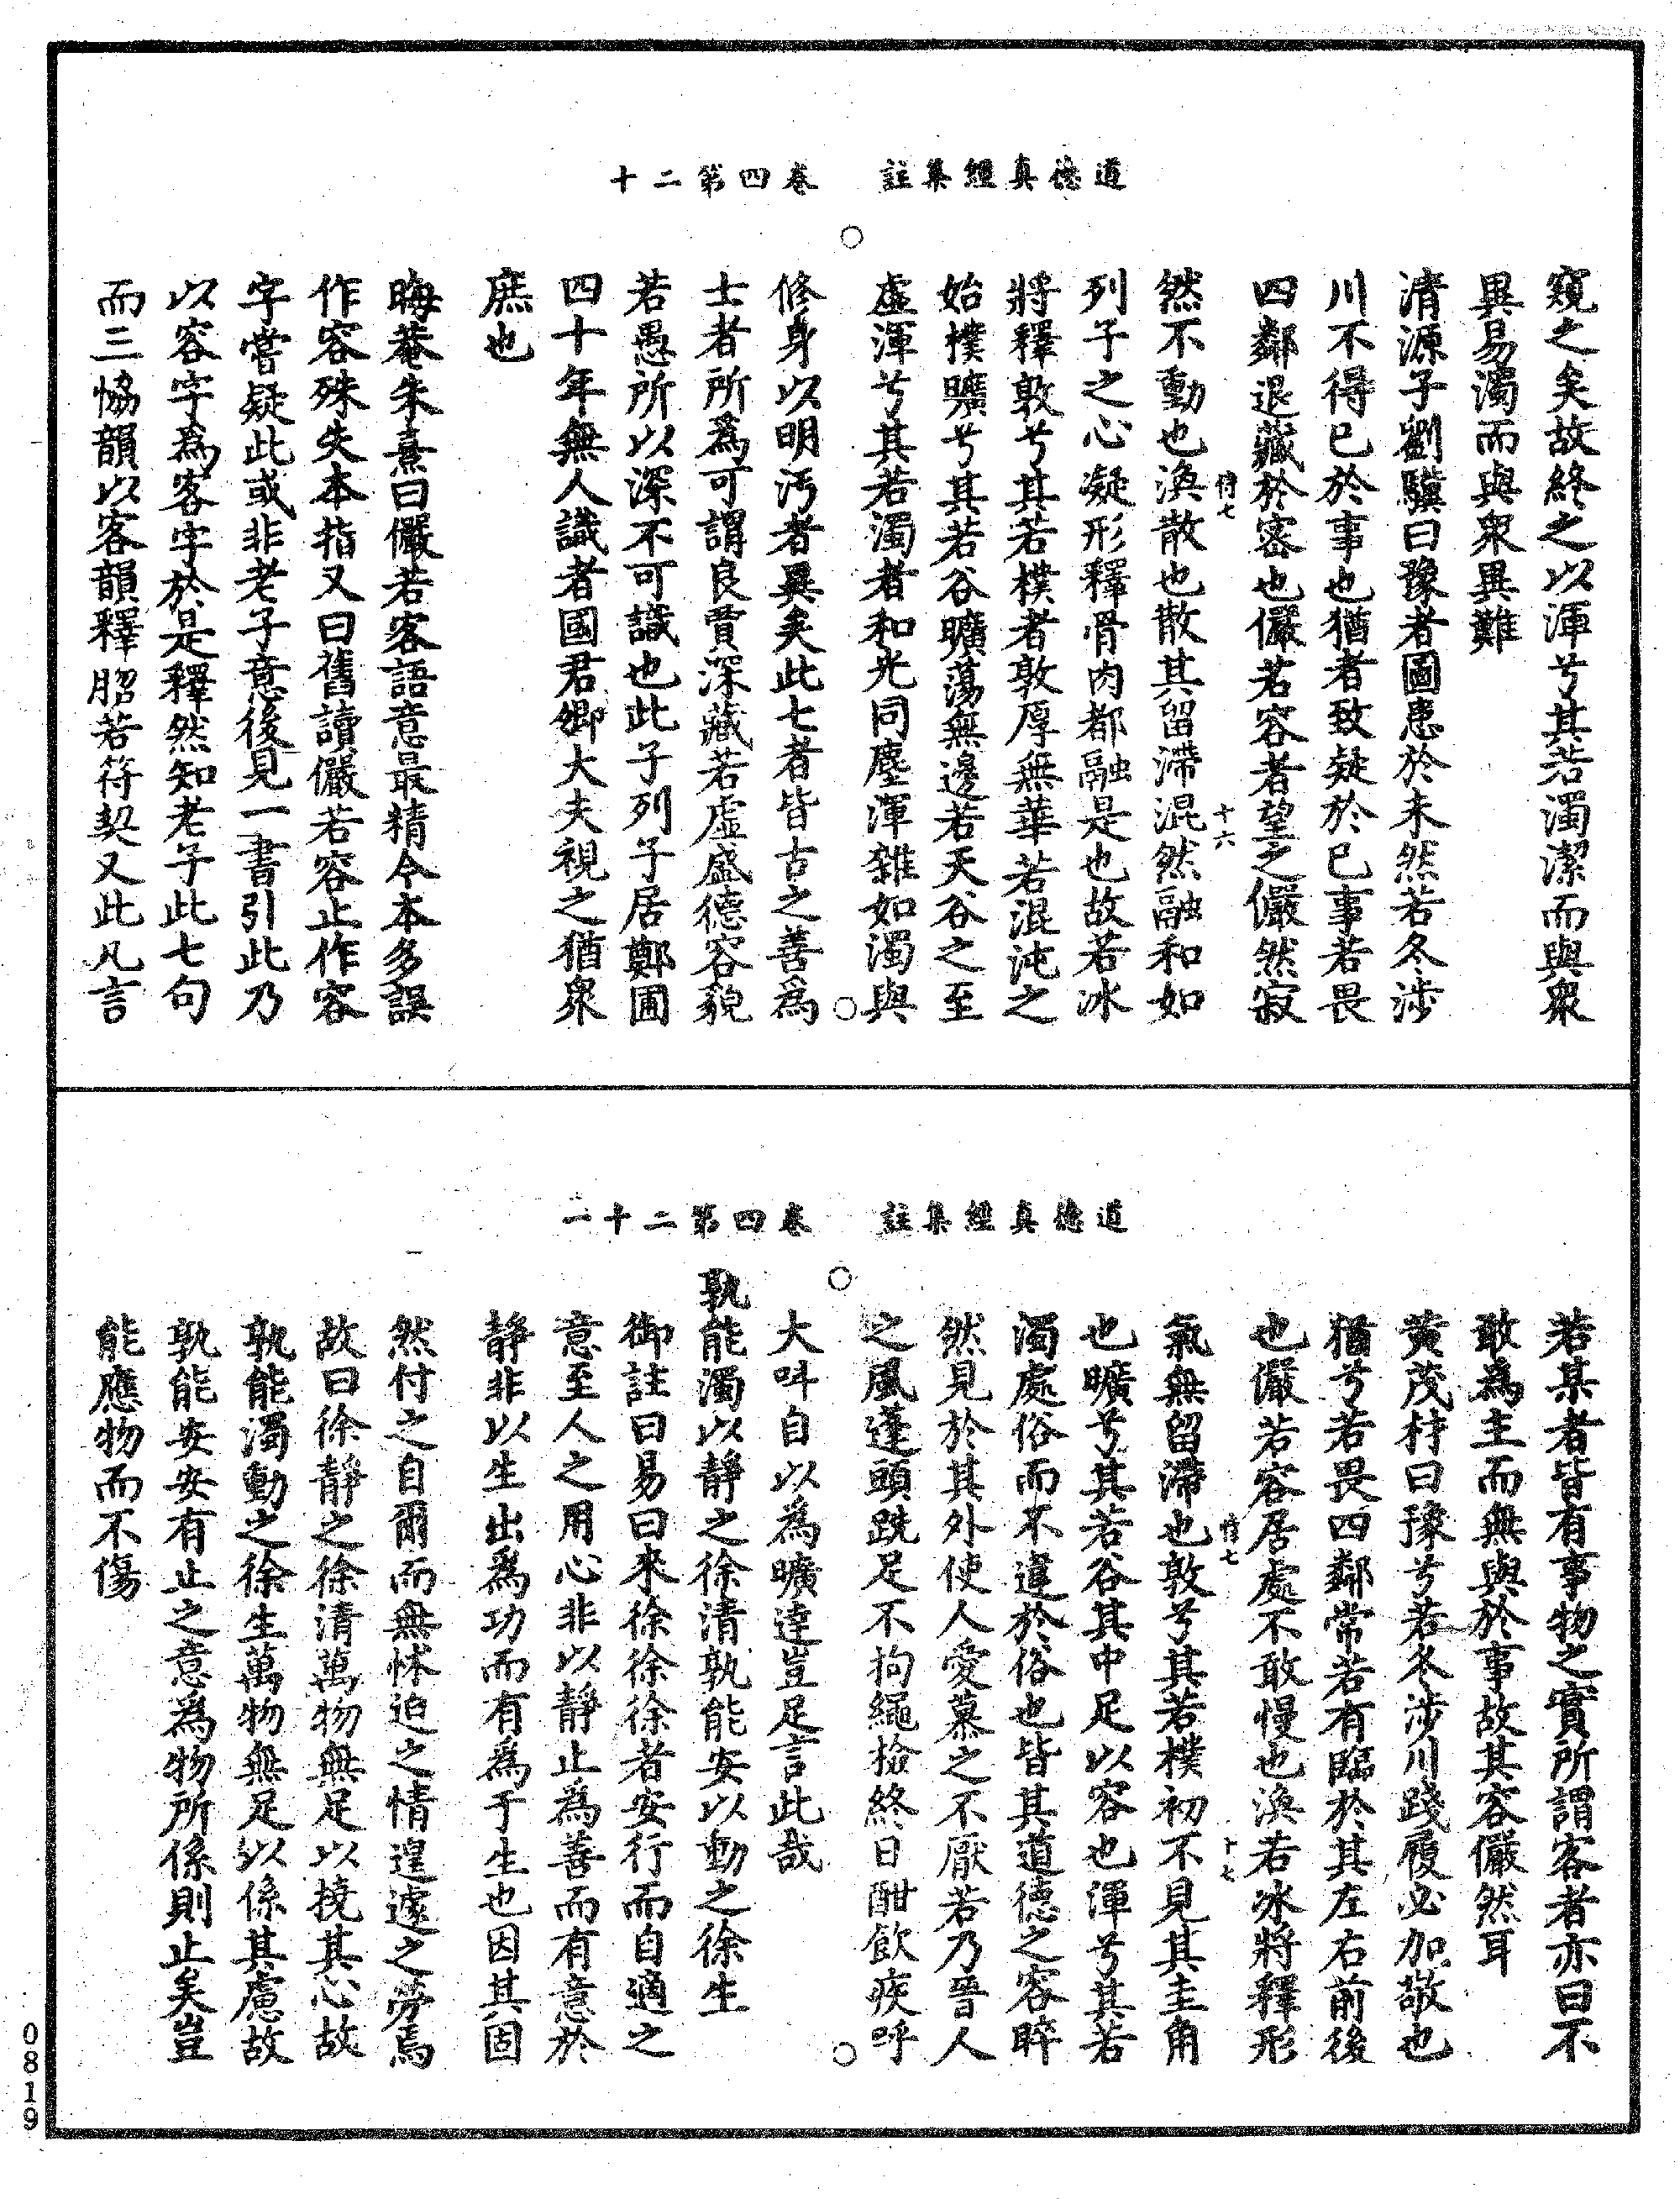 道德真經集註 卷四第二十
窺之矣故終之以渾兮其若濁潔而與衆
異易濁而與衆異難
清源子劉驥曰豫者圖患於未然若冬涉
川不得已於事也猶者致疑於已事若畏
四鄰退藏於密也儼若容者望之儼然寂
然不動也渙散也散其留滯混然融和如
列子之心凝形釋骨肉都融是也故若冰
將釋敦兮其若樸者敦厚無華若混沌之
始樸曠兮其若谷曠蕩無邊若天谷之至
虛渾兮其若濁者和光同塵渾雜如濁與
修身以明汚者異矣此七者皆古之善爲
士者所爲可謂良賈深藏若虛盛德容貌
若愚所以深不可識也此子列子居鄭圃
四十年無人識者國君卿大夫視之猶衆
庶也
晦菴朱熹曰儼若客語意最精今本多誤
作容殊失本指又曰舊讀儼若容止作容
字嘗疑此或非老子意後見一書引此乃
以容字爲客字於是釋然知老子此七句
而三恊韻以客韻釋脗若符契又此凡言
道德真經集註 卷四第二十一
若某者皆有事物之實所謂客者亦曰不
敢爲主而無與於事故其容儼然耳
黄茂材曰豫兮若冬涉川踐履必加敬也
猶兮若畏四鄰常若有臨於其左右前後
也儼若容居處不敢慢也渙若冰將釋形
氣無留滯也敦兮其若樸初不見其圭角
也曠兮其若谷其中足以容也渾兮其若
濁處俗而不違於俗也皆其道德之容睟
然見於其外使人愛慕之不厭若乃晉人
之風蓬頭跣足不拘繩撿終日酣飲疾呼
大呌自以爲曠達豈足言此哉
孰能濁以靜之徐清孰能安以動之徐生
御註曰易曰來徐徐徐者安行而自適之
意至人之用心非以靜止爲善而有意於
靜非以生出爲功而有爲于生也因其固
然付之自爾而無怵迫之情遑遽之勞焉
故曰徐靜之徐清萬物無足以撓其心故
孰能濁動之徐生萬物無足以係其慮故
孰能安安有止之意爲物所係則止矣豈
能應物而不傷
0819